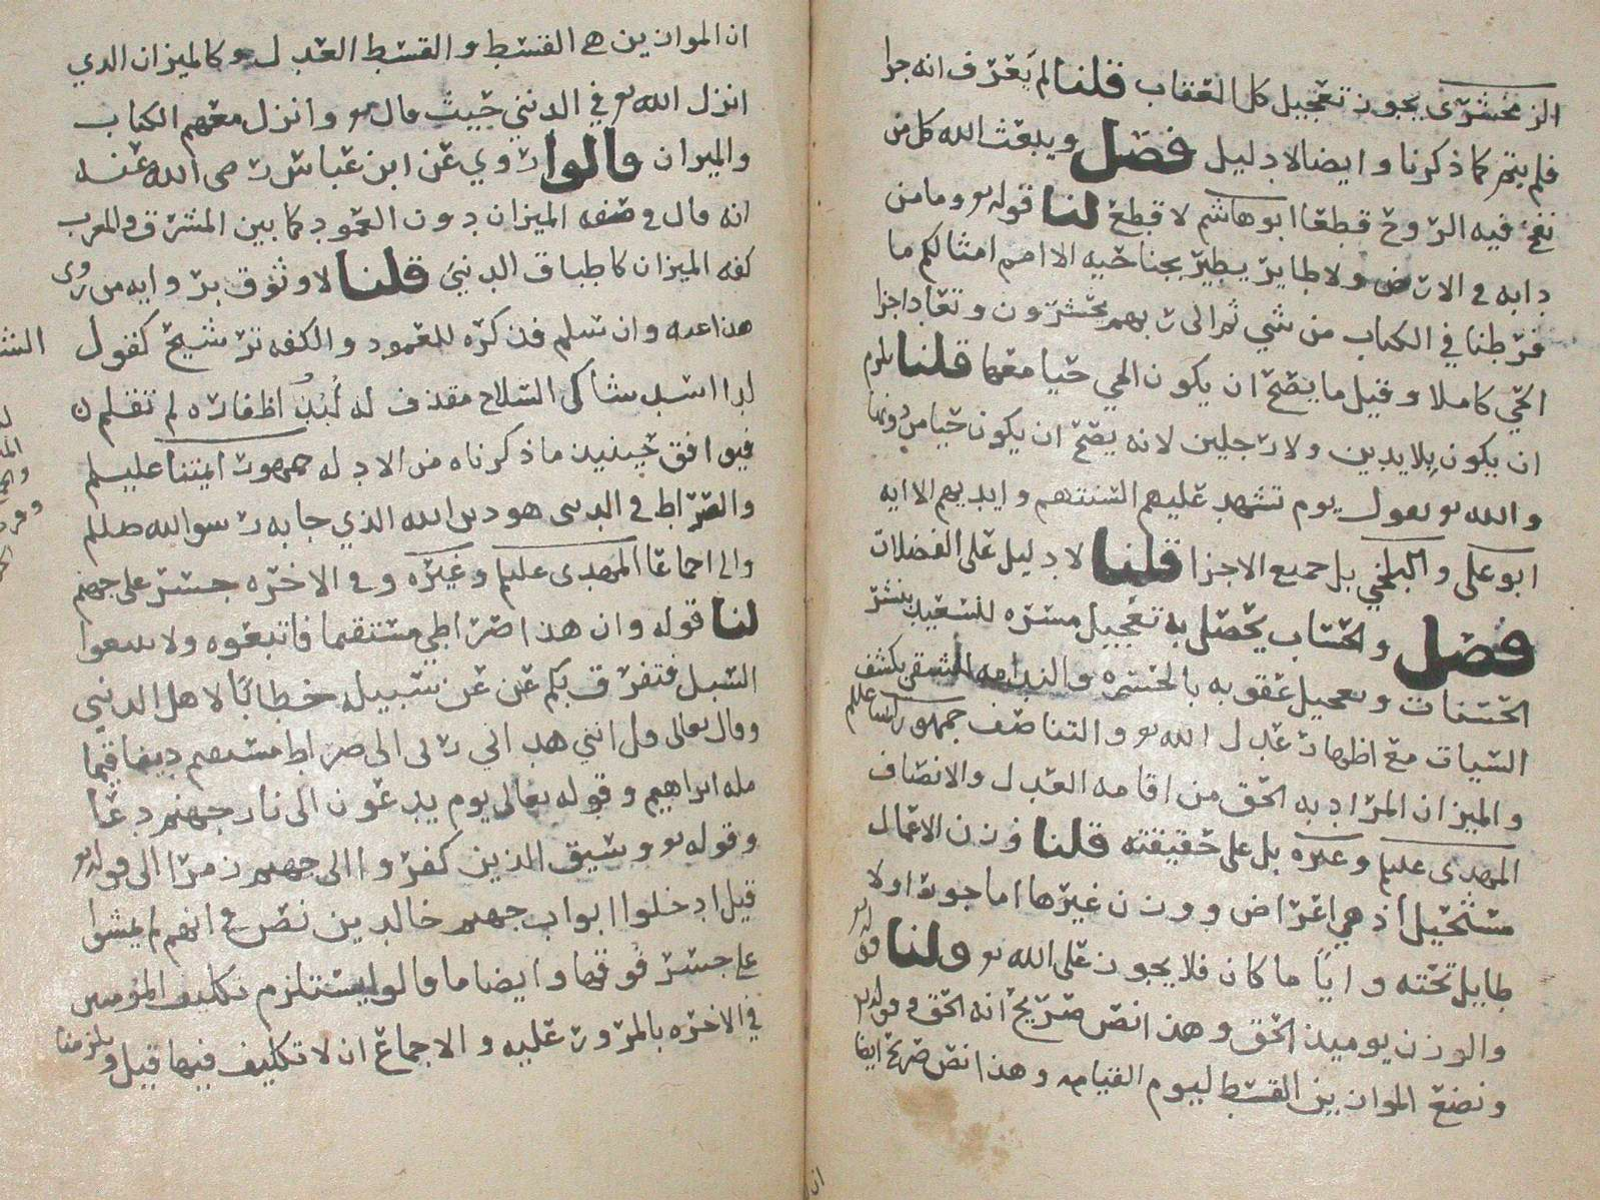 الزمخشرى يجوز تعجيل كل العقاب قلنا لم يعرف انه جزا
فلم يتم كما ذكرنا وايضا لا دليل فصل ويبعث الله كل من
نفخ فيه الروح قطعا ابو هاشم لا قطع لنا قوله تع وما من
دابه في الارض ولا طاير يطير بجناحيه الا امم امثالكم ما
فرطنا في الكتاب من شي ثم الى ربهم يحشرون وتعاد اجزا
الحي كاملا وقيل ما يصح ان يكون الحي حيا معها قلنا يلزم
ان يكون بلا يدين ولا رجلين لانه يصح ان يكون حيا من دونها
والله تع يقول يوم تشهد عليهم السنتهم وايديهم الايه
ابو على والبلخي بل جميع الاجزا قلنا لا دليل على الفضلات
فصل والحساب يحصل به تعجيل مسره للسعيد بنشر
الحسنات وتعجيل عقوبه بالحسره والندامه للشقي بكشف
السيات مع اظهار عدل الله تع والتناصف جمهور
والميزان المراد به الحق من اقامه العدل والانصاف
المهدى عليلم وغيره بل على حقيقته قلنا وزن الاعمال
مستحيل اذ هي اعراض ووزن غيرها اما جور او لا
طايل تحته وايا ما كان فلا يجوز على الله تع ولنا قوله تع
والوزن يوميذ الحق وهذا نص صريح انه الحق وقوله تع
ونضع الموازين القسط ليوم القيامه وهذا نص صريح ايضا
ان الموازين هي القسط والقسط العدل وكالميزان الذي
انزل الله تع في الدنيي حيث قال تع وانزل معهم الكتاب
والميزان قالوا روي عن ابن عباس رضى الله عنه
انه قال في صفه الميزان دون العمود كما بين المشرق والمغرب
كفه الميزان كاطباق الدنيي قلنا لا وثوق بروايه من روى
هذا عنه وان سلم فذكره للعمود والكفه ترشيح كقول
لدا اسد شاكى السلاح مقذف له لبد اظفاره لم تقلم
فيوافق حينيذ ما ذكرناه من الادله جمهور ايمتنا عليلم
والصراط في الدنيى هو دين الله الذي جا به رسول الله صللم
والى اجماعا المهدى عليلم وغيره وفي الاخره جسر على جهنم
لنا قوله وان هذا صراطي مستقيما فاتبعوه ولا تتبعوا
السبل فتفرق بكم عن عن سبيله خطابا لاهل الدنيي
وقال تعالى قل انني هداني ربى الى صراط مستقيم دينا قيما
مله ابراهيم وقوله تعالى يوم يدعون الى نار جهنم دعا
وقوله تع وسيق الذين كفروا الى جهنم زمرا الى قوله تع
قيل ادخلوا ابواب جهنم خالدين نص في انهم لم يمشوا
على جسر فوقها وايضا ما قالوا يستلزم تكليف المومنين
في الاخره بالمرور عليه والاجماع ان لا تكليف فيها قيل ويلزمنا